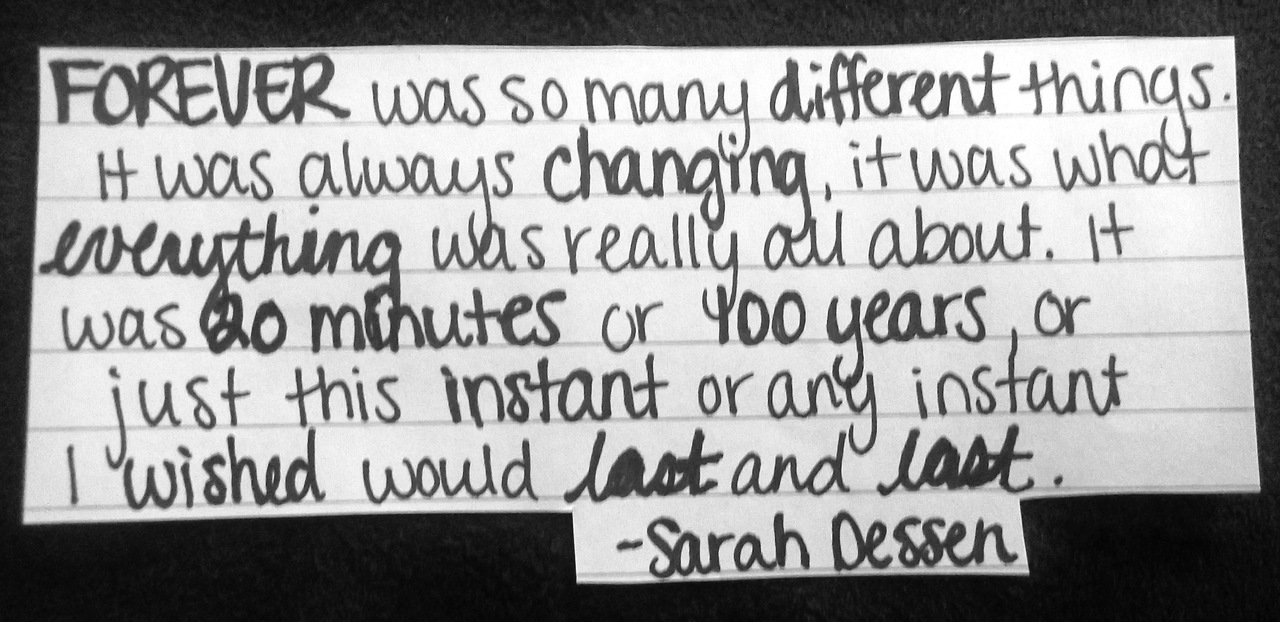 FOREVER was so many different things.
It was always changing, it was what
everything was really all about. It
was 20 minutes or 400 years, or
just this instant or any instant
I wished would last and last.
-Sarah Dessen